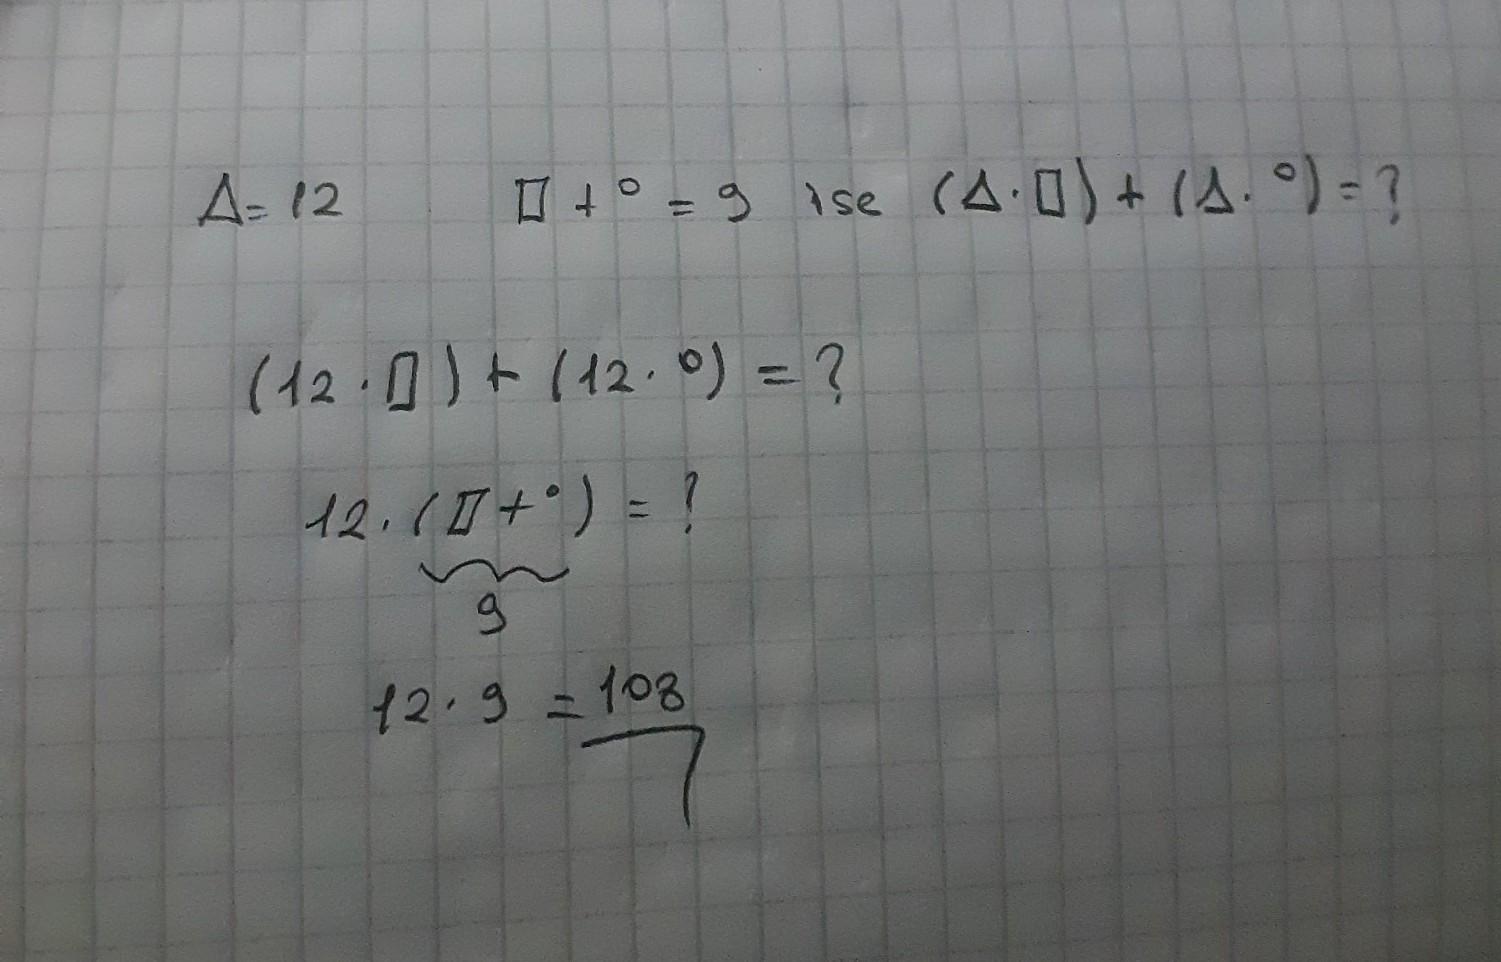 Δ = 12 □ + ° = 9 ise (Δ · □) + (Δ. °) = ?
(12 · □) + (12. °) = ?
12. (□ + °) = ?
9
12 · 9 = 108